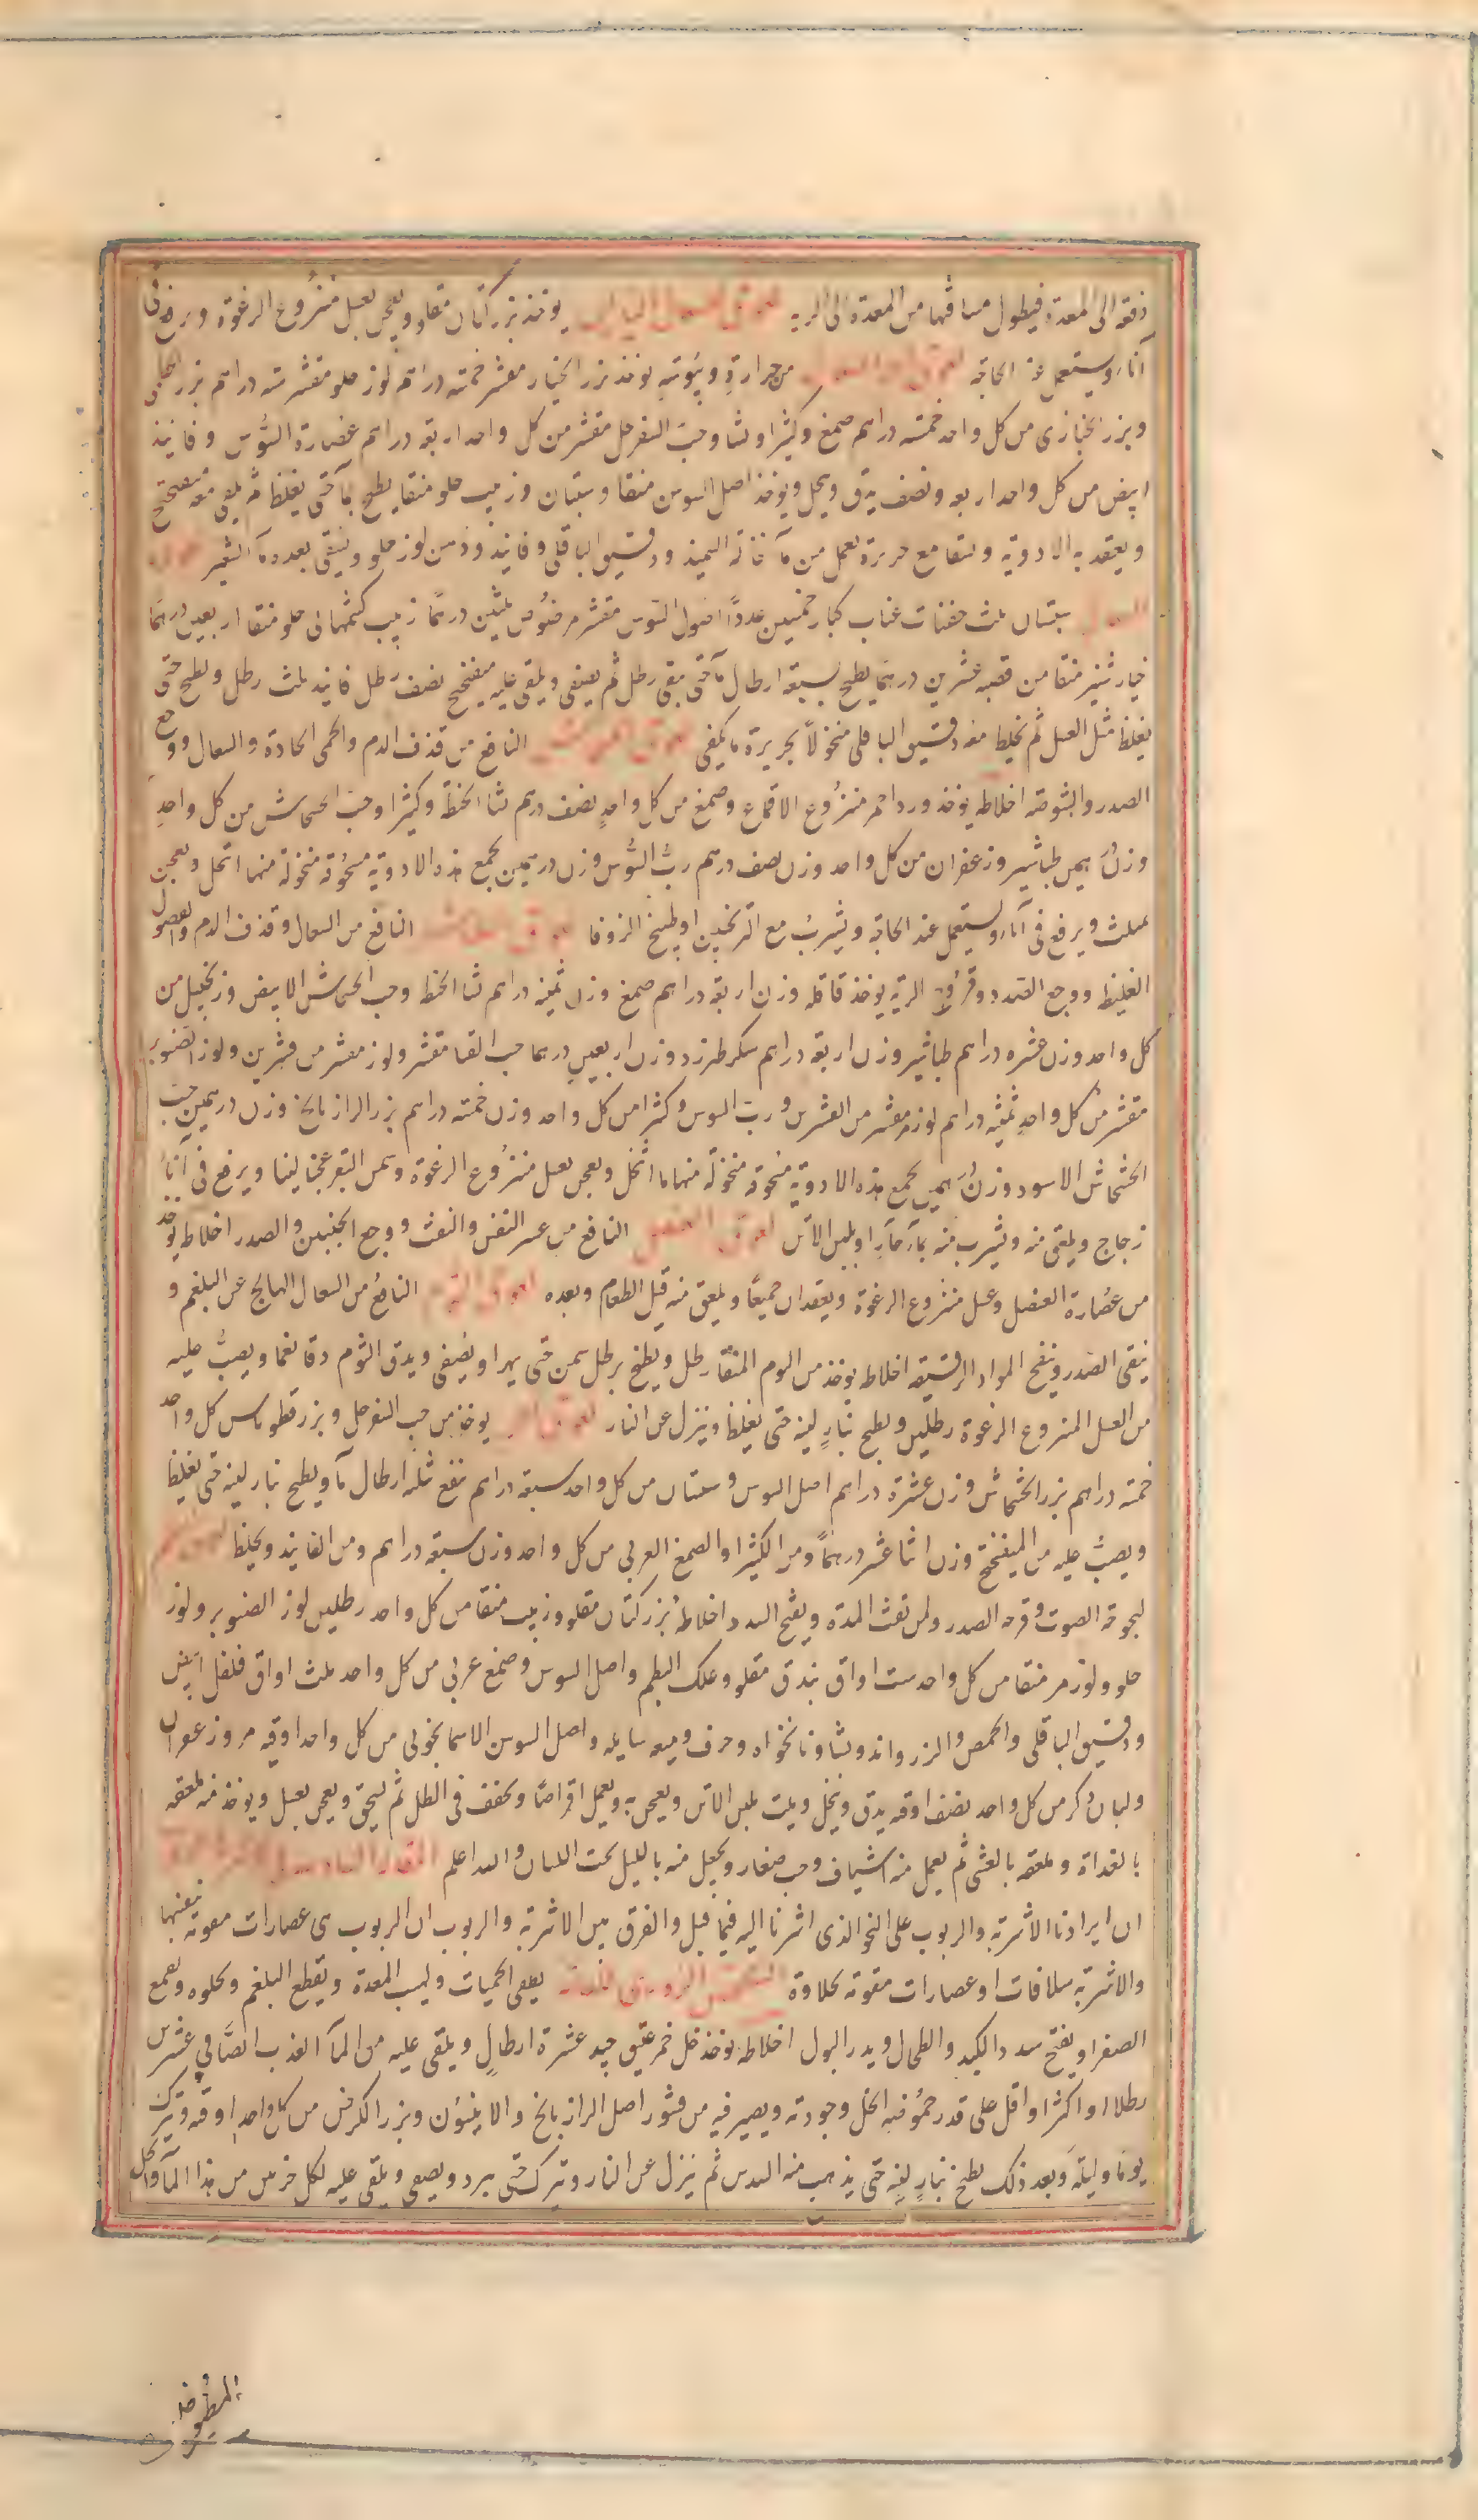 دفعة الى المعدة فيطول مسافتها من المعدة الى الرية لعوق للسعال اليابس يوخذ بزر كتان مقلو ويعجن بعسل منزوع الرغوة ويرفع فى
اناء ويستعمل عند الحاجة من حرارة ويبوسة يوخذ بزر الخيار مقشر خمسة دراهم لوز حلو مقشر ستة دراهم بزر
وبزر الخبازى من كل واحد خمسة دراهم صمغ وكثيرا ونشا وحب السفرجل مقشر من كل واحد اربعة دراهم عصارة السوس وفانيذ
ابيض من كل واحد اربعه ونصف يدق وينخل ويوخذ اصل السوس منقا وسبستان وزبيب حلو منقا يطبخ بما حتى يغلظ ثم يلقى معه ميفختج
ويعقد به الادوية وتسقا مع حريرة تعمل من ما نخالة السميذ ودقيق الباقلى وفانيذ ودهن لوز حلو ويسقى بعده ما الشعير
سبستان ثلث حفنات عناب كبار خمسين عددا اصول السوس مقشر مرضوض ثلثين درهما زبيب كشمهانى حلو منقا اربعين درهما
خيار شنبر منقا من قصبه عشرين درهما يطبخ بسبعة ارطال ما حتى يبقى رطل ثم يصفى ويلقى عليه ميفختج نصف رطل فانيذ ثلث رطل ويطبخ حتى
يغلظ مثل العسل ثم يخلط معه دقيق الباقلى منخولا بحريرة ما يكفى النافع من قذف الدم والحمى الحادة والسعال ووجع
الصدر والشوصة اخلاطه يوخذ ورد احمر منزوع الاقماع وصمغ من كل واحد نصف درهم نشا الحنطة وكثيرا وحب الخشخاش من كل واحد
وزن درهمين طباشير وزعفران من كل واحد وزن نصف درهم رب السوس وزن درهمين يجمع هذه الادوية مسحوقة منخولة منها انتخل ويعجن
بمثلث ويرفع فى اناء ويستعمل عند الحاجة ويشرب مع الترنجبين او طبيخ الزوفا النافع من السعال وقذف الدم والفضول
الغليظ ووجع الصدر وقروح الرية يوخذ قاقله وزن اربعة دراهم صمغ وزن ثمنيه دراهم نشا الحنط وحب الخشخاش الابيض وزنجبيل من
كل واحد وزن عشره دراهم طباشير وزن اربعة دراهم سكر طبرزد وزن اربعين درهما حب القثا مقشر ولوز مقشر من قشرين ولوز الصنوبر
مقشر من كل واحد ثمنيه دراهم لوز مر مقشر من القشرين ورب السوس وكثيرا من كل واحد وزن خمسة دراهم بزر الرازيانج وزن درهمين حب
الخشخاش الاسود وزن درهمين يجمع هذه الادوية مسحوقة منخولة منها ما انتخل ويعجن بعسل منزوع الرغوة وسمن البقر عجنا لينا ويرفع فى اناء
زجاج ويلعق منه ويشرب منه بماء حار او بلبن الاتن لعوق العنصل النافع من عسر النفس والنفث ووجع الجنبين والصدر اخلاطه يوخذ
من عصارة العنصل وعسل منزوع الرغوة ويعقدان جميعا ويلعق منه قبل الطعام وبعده لعوق الثوم النافع من السعال الهائج عن البلغم و
ينقى الصدر وينفع المواد الرقيقة اخلاطه يوخذ من الثوم المنقا رطل ويطبخ برطل سمن حتى يهرا ويصفى ويدق الثوم دقا نعما ويصب عليه
من العسل المنزوع الرغوة رطلين ويطبخ بنار لينه حتى يغلظ وينزل عن النار يوخذ من حب السفرجل وبزر قطونا من كل واحد
خمسة دراهم بزر الخشخاش وزن عشرة دراهم اصل السوس وسبستان من كل واحد سبعة دراهم ينقع بثلثه ارطال ما ويطبخ بنار لينه حتى يغلظ
ويصب عليه من الميفختج وزن اثنا عشر درهما ومن الكثيرا والصمغ العربى من كل واحد وزن سبعة دراهم ومن الفانيذ ويخلط
لبحوحة الصوت وقرحه الصدر ولمن نفث المدة ويفتح السدد اخلاطه بزر كتان مقلو وزبيب منقا من كل واحد رطلين لوز الصنوبر ولوز
حلو ولوز مر منقا من كل واحد ست اواق بندق مقلو وعلك البطم واصل السوس وصمغ عربى من كل واحد ثلث اواق فلفل ابيض
ودقيق الباقلى والحمص والزرواند ونشا ونانخواه وحرف وميعه سايله واصل السوسن الاسمانجونى من كل واحد اوقيه مر وزعفران
ولبان ذكر من كل واحد نصف اوقيه يدق وينخل ويلت بلبن الاتن ويعجن به ويعمل اقراصا ويجفف فى الظل ثم يسحق ويعجن بعسل ويوخذ منه ملعقه
بالغداة وملعقه بالعشى ثم يعمل منه اشياف وحب صغار ويجعل منه بالليل تحت اللسان والله اعلم
ان ايرادنا الاشربة والربوب على النحو الذى اشرنا اليه فيما قبل والفرق بين الاشربة والربوب ان الربوب هى عصارات مقومة بنفسها
والاشربة سلافات او عصارات مقومة بحلاوة يطفى الحميات ولهيب المعدة ويقطع البلغم ويجلوه ويقمع
الصفرا ويفتح سدد الكبد والطحال ويدر البول اخلاطه يوخذ خل خمر عتيق جيد عشرة ارطال ويلقى عليه من الما العذب الصافى عشرين
رطلا او اكثر او اقل على قدر حموضة الخل وجودته ويصير فيه من قشور اصل الرازيانج والانيسون وبزر الكرفس من كل واحد اوقيه ويترك
يوما وليلة وبعد ذلك يطبخ بنار لينه حتى يذهب منه السدس ثم ينزل عن النار ويترك حتى يبرد ويصفى ويلقى عليه لكل جزئين من هذا الما والخل
المطبوخين